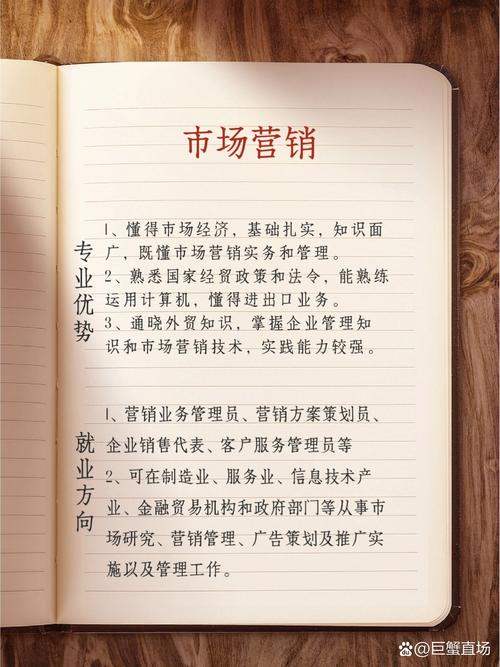 市场营销
专业优势
1、懂得市场经济，基础扎实，知识面
广，既懂市场营销实务和管理。
2、熟悉国家经贸政策和法令，能熟练
运用计算机，懂得进出口业务。
3、通晓外贸知识，掌握企业管理知
识和市场营销技术，实践能力较强。
就业方向
1、营销业务管理员、营销方案策划员、
企业销售代表、客户服务管理员等
2、可在制造业、服务业、信息技术产
业、金融贸易机构和政府部门等从事市
场研究、营销管理、广告策划及推广实
施以及管理工作。
@巨蟹直场